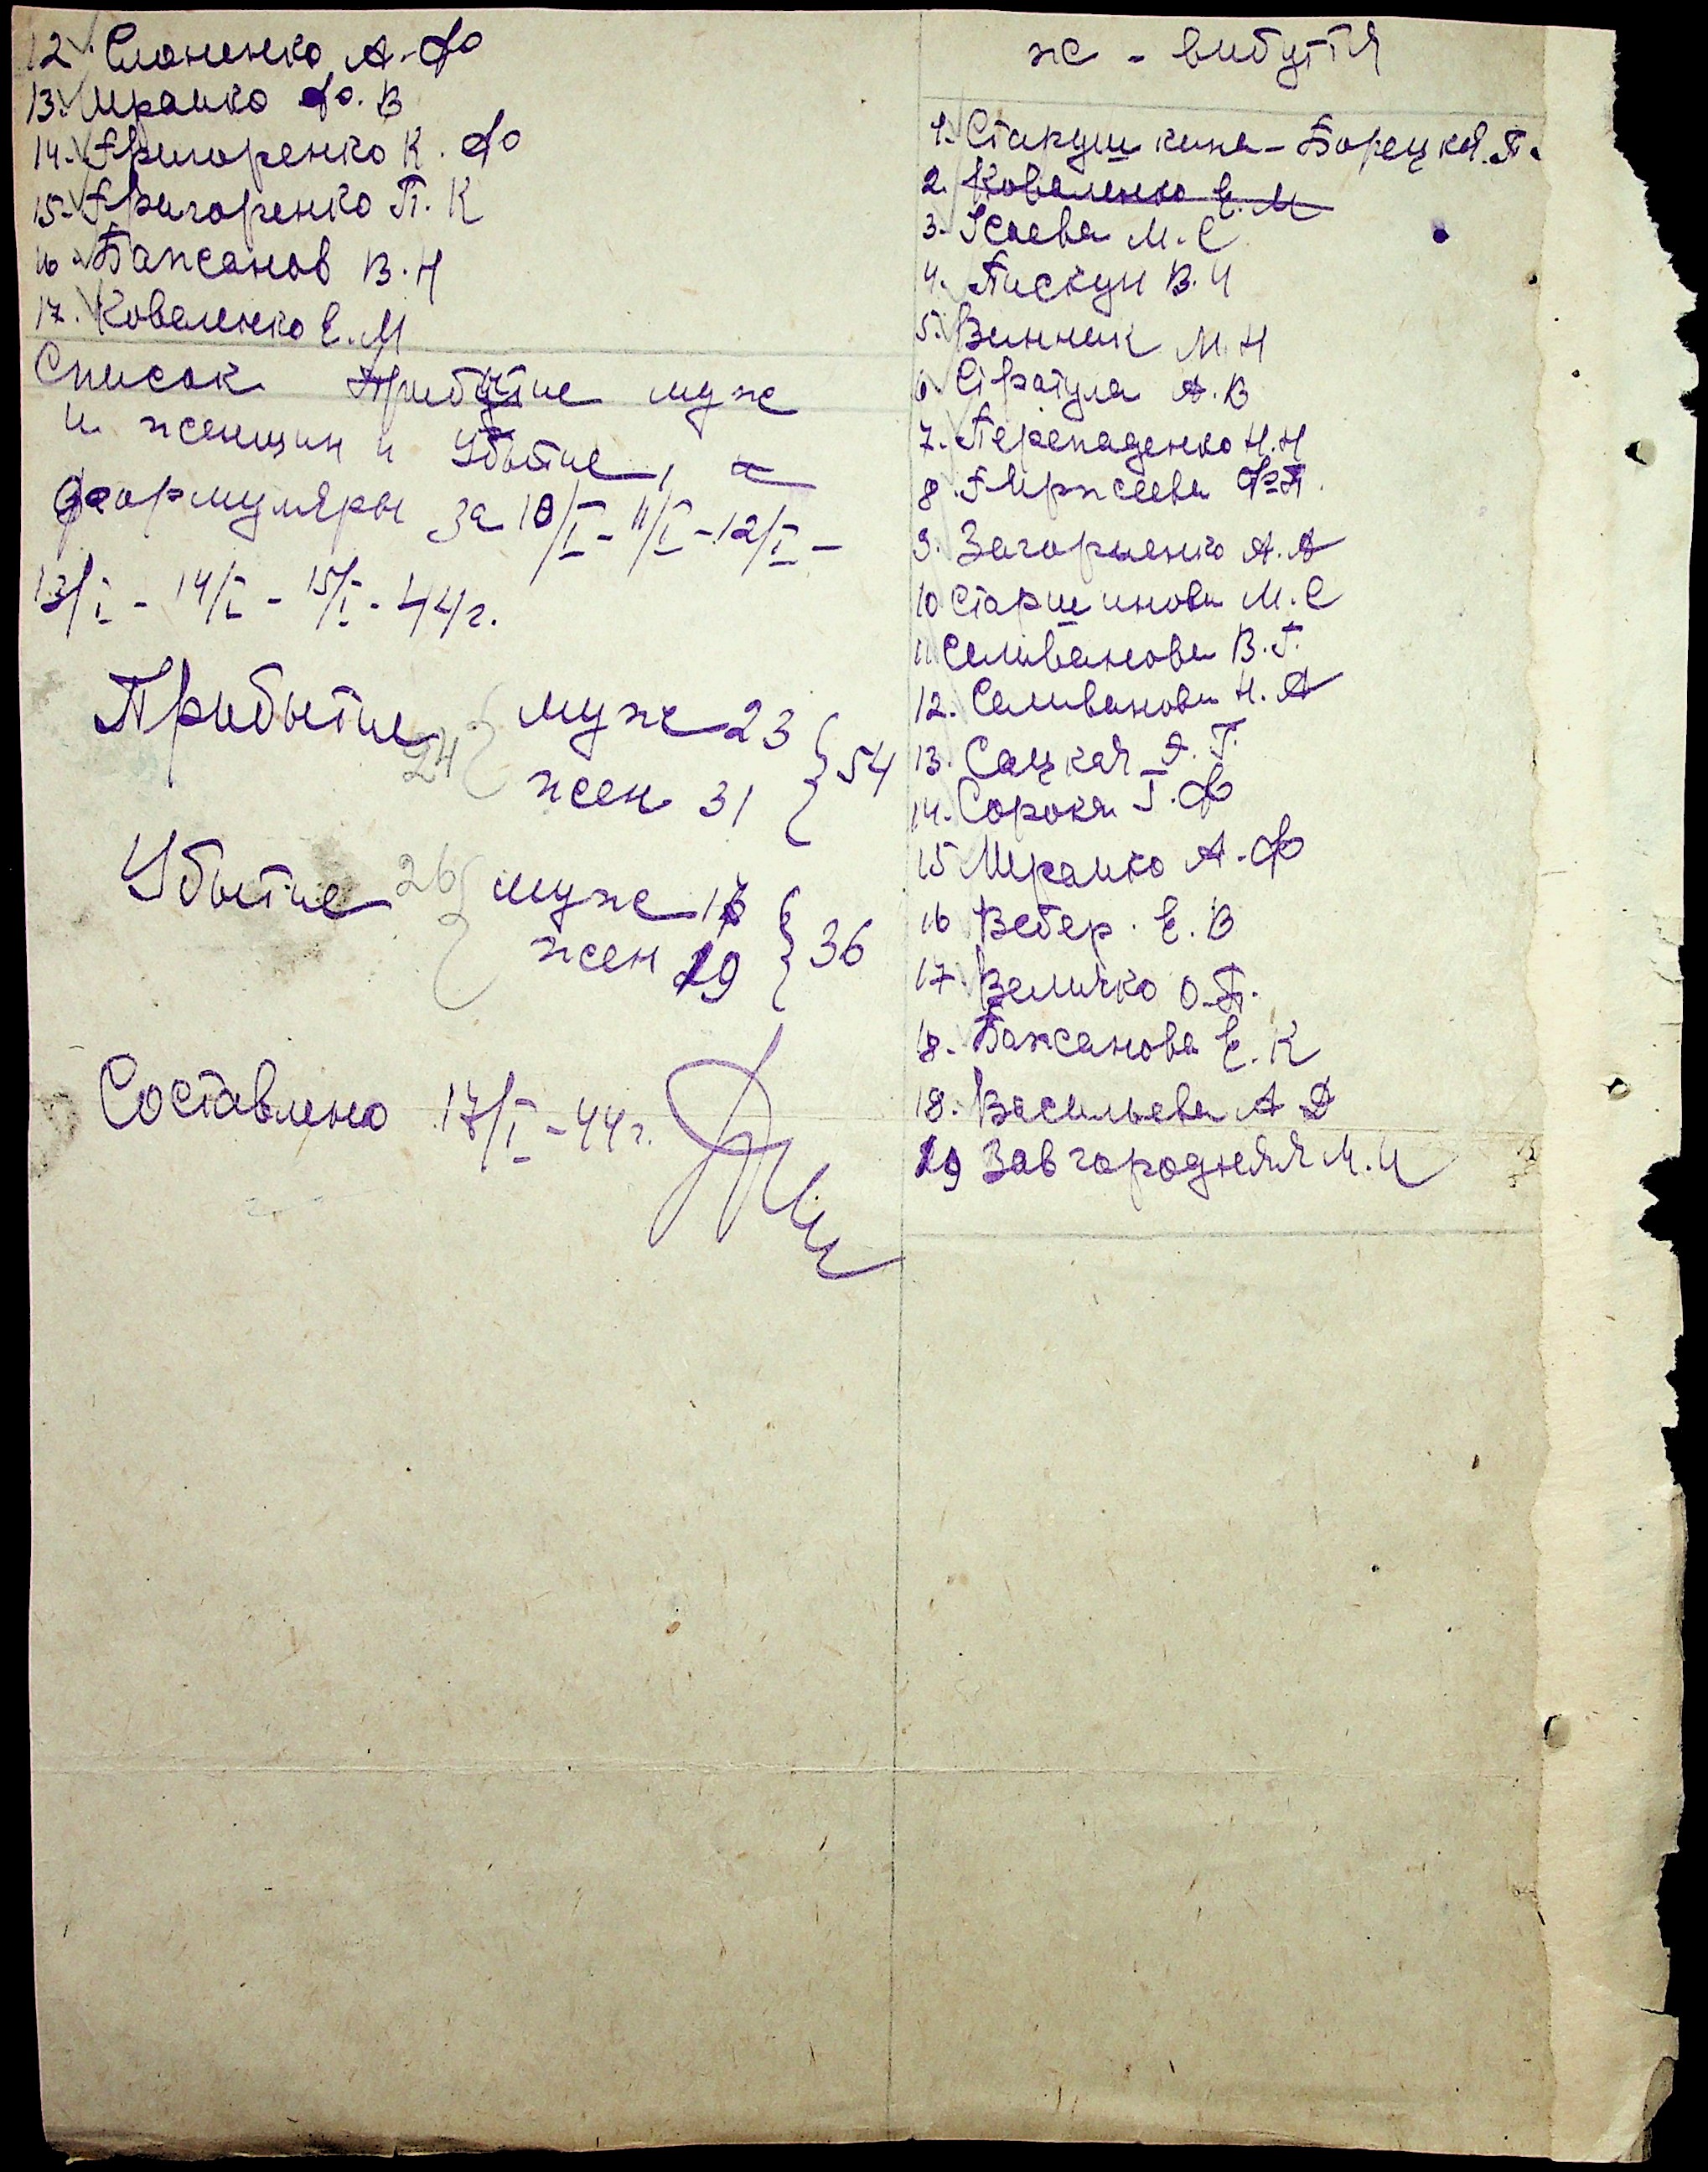 12. Слоненко А. Ф
13. Мрамко Ф. В
14. Григоренко К. Ф
15. Григоренко П. К
16. Бажанов В. Н
17. Коваленко Е. М
Список Прибытие муж
и женщин и Убытие,
формуляры за 10/I - 11/I - 12/I -
13/I - 14/I - 15/I - 44г.
Прибытие 24 { муж 23 } 54
жен 31
Убытие 26 { муж 17 } 36
жен 19
Составлено 17/I - 44г.
ж - вибуття
1. Старушкина - Борецкая. П.
2. Коваленко Е. М
3. Исаева М. С
4. Пискун В. И
5. Винник М. Н
6 Стратула А. В
7. Перепаденко Н. Н
8.
9. Загорненко А. А
10 Старшинова М. С
11 Селиванова В. Г.
12. Селиванова Н. А
13. Сацкая Я. Г.
14. Сорока Г. Ф
15 Мрамко А. Ф
16 Вебер. Е. В
17 Величко О. П.
18. Бажанова Е. К
18. Васильева А Д
19 Завгородняя М. И